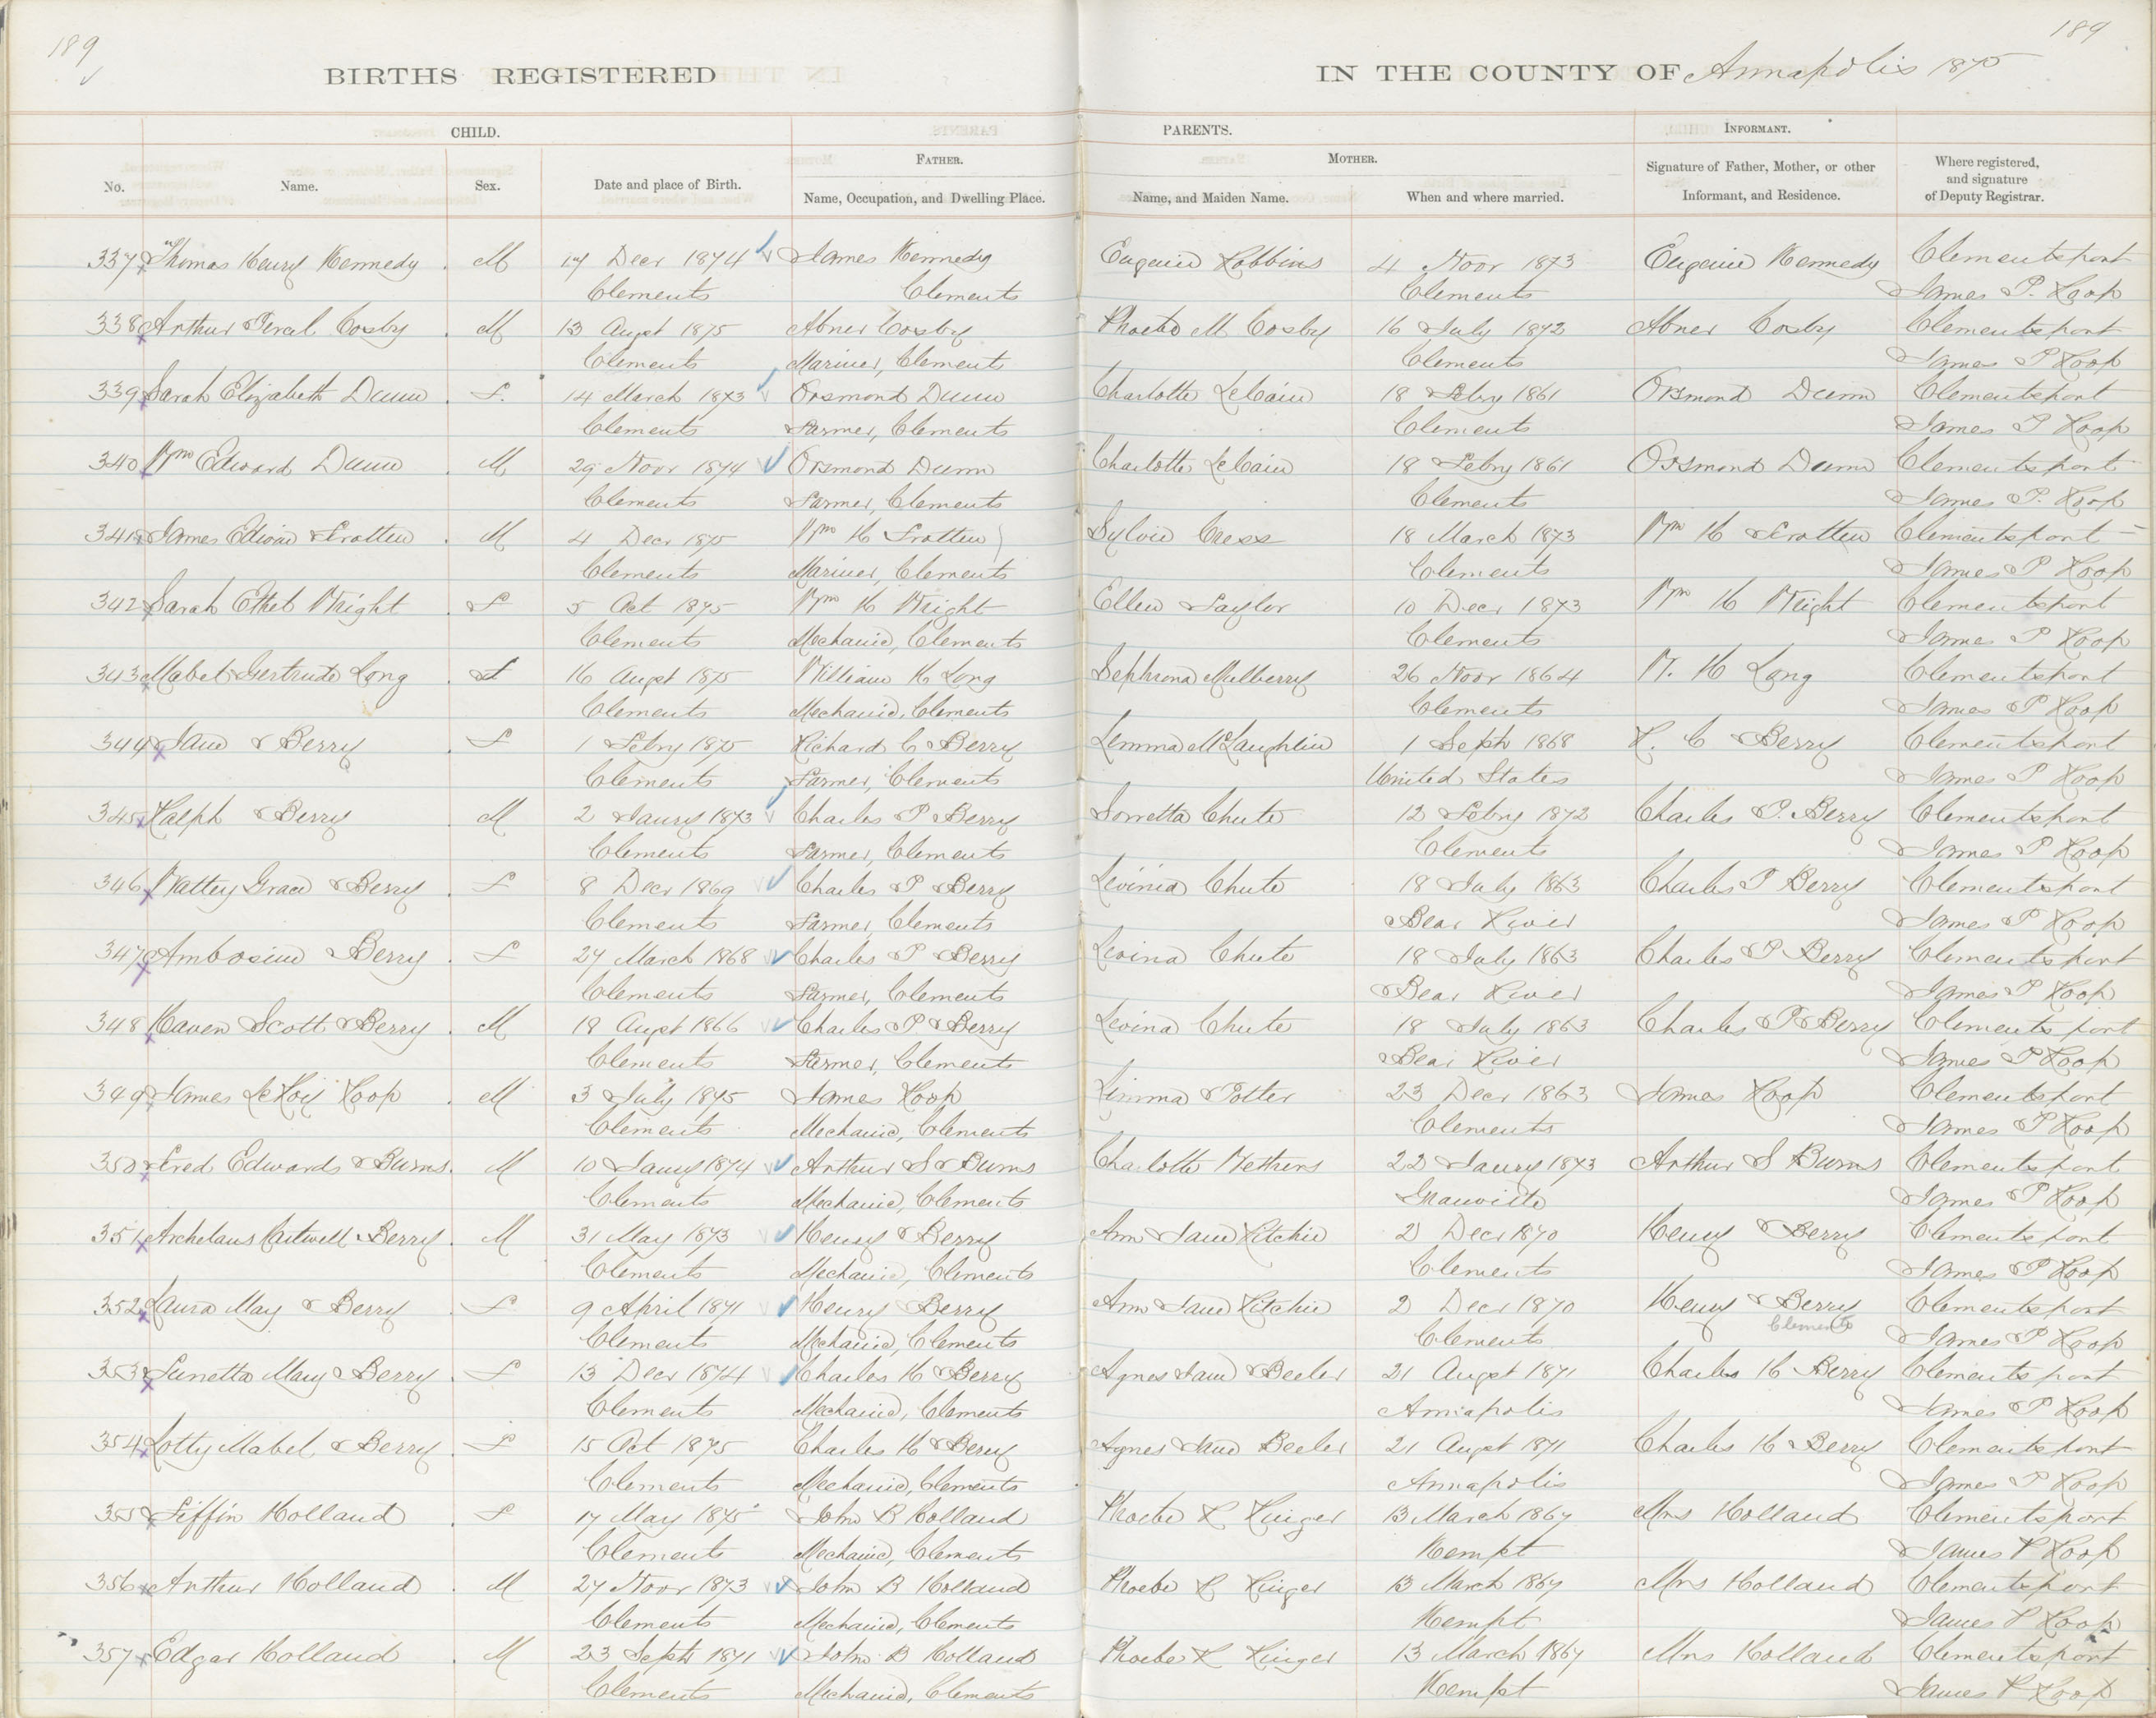 189
189
BIRTHS REGISTERED
IN THE COUNTY OF Annapolis 1875
CHILD.
PARENTS.
INFORMANT.
FATHER.
MOTHER.
No.
Name.
Sex.
Date and place of Birth.
Name, Occupation, and Dwelling Place.
Name, and Maiden Name.
When and where married.
Signature of Father, Mother, or other
Informant, and Residence.
Where registered,
and signature
of Deputy Registrar.
337 Thomas Henry Kennedy M 17 Decr 1874 James Kennedy Eugenie Robbins 4 Novr 1873 Eugenie Kennedy Clementsport
Clements Clements Clements James P. Roop
338 Arthur Percel Cosby M 13 Augst 1875 Abner Cosby Phoebe M Cosby 16 July 1872 Abner Cosby Clementsport
Clements Mariner, Clements Clements James P Roop
339 Sarah Elizabeth Dunn F. 14 March 1873 Orsmond Dunn Charlotte LeCain 18 Febry 1861 Orsmond Dunn Clementsport
Clements Farmer, Clements Clements James P Roop
340 Wm Edward Dunn M 29 Novr 1874 Orsmond Dunn Charlotte LeCain 18 Febry 1861 Orsmond Dunn Clementsport
Clements Farmer, Clements Clements James P. Roop
341 James M 4 Decr 1875 Wm H Sylvie Cress 18 March 1873 Wm H Clementsport
Clements Mariner, Clements Clements James P Roop
342 Sarah Ethel Wright F 5 Oct 1875 Wm H Wright Ellen Taylor 10 Decr 1873 Wm H Wright Clementsport
Clements Mechanic, Clements Clements James P Roop
343 Mabel Gertrude Long F 16 Augst 1875 William H Long Sephrona Mulberry 26 Novr 1864 W. H Long Clementsport
Clements Mechanic, Clements Clements James P Roop
344 Jane Berry F 1 Febry 1875 Richard C Berry Lemma McLaughlin 1 Septr 1868 R. C Berry Clementsport
Clements Farmer, Clements United States James P Roop
345 Ralph Berry M 2 Jany 1873 Charles P Berry Sorretta Chute 12 Febry 1872 Charles P. Berry Clementsport
Clements Farmer, Clements Clements James P Roop
346 Wattey Grace Berry F 8 Decr 1869 Charles P Berry Levinia Chute 18 July 1863 Charles P Berry Clementsport
Clements Farmer, Clements Bear River James P Roop
347 Ambosine Berry F 27 March 1868 Charles P Berry Levina Chute 18 July 1863 Charles P Berry Clementsport
Clements Farmer, Clements Bear River James P Roop
348 Haven Scott Berry M 18 Augst 1866 Charles P Berry Levina Chute 18 July 1863 Charles P Berry Clementsport
Clements Farmer, Clements Bear River James P Roop
349 James LeRoy Roop M 3 July 1875 James Roop Limma Potter 23 Decr 1863 James Roop Clementsport
Clements Mechanic, Clements Clements James P Roop
350 Fred Edwards Burns M 10 Jany 1874 Arthur S Burns Charlotte 22 Jany 1873 Arthur S Burns Clementsport
Clements Mechanic, Clements Granville James P Roop
351 Archelaus Hartwell Berry M 31 May 1873 Henry Berry Ann Jane Ritchie 21 Decr 1870 Henry Berry Clementsport
Clements Mechanic, Clements Clements James P Roop
352 Laura May Berry F 9 April 1871 Henry Berry Ann Jane Ritchie 21 Decr 1870 Henry Berry Clementsport
Clements
Clements Mechanic, Clements Clements James P Roop
353 Lunetta May Berry F 13 Decr 1874 Charles H Berry Agnes Jane Beeler 21 Augst 1871 Charles H Berry Clementsport
Clements Mechanic, Clements Annapolis James P Roop
354 Lotty Mabel Berry F 15 Oct 1875 Charles H Berry Agnes Jane Beeler 21 Augst 1871 Charles H Berry Clementsport
Clements Mechanic, Clements Annapolis James P Roop
355 Tiffin Holland F 17 May 1875 John B Holland Phoebe R Ringer 13 March 1867 Mrs Holland Clementsport
Clements Mechanic, Clements Kempt James P Roop
356 Arthur Holland M 27 Novr 1873 John B Holland Phoebe R Ringer 13 March 1867 Mrs Holland Clementsport
Clements Mechanic, Clements Kempt James P Roop
357 Edgar Holland M 23 Septr 1871 John B Holland Phoebe R Ringer 13 March 1867 Mrs Holland Clementsport
Clements Mechanic, Clements Kempt James P Roop